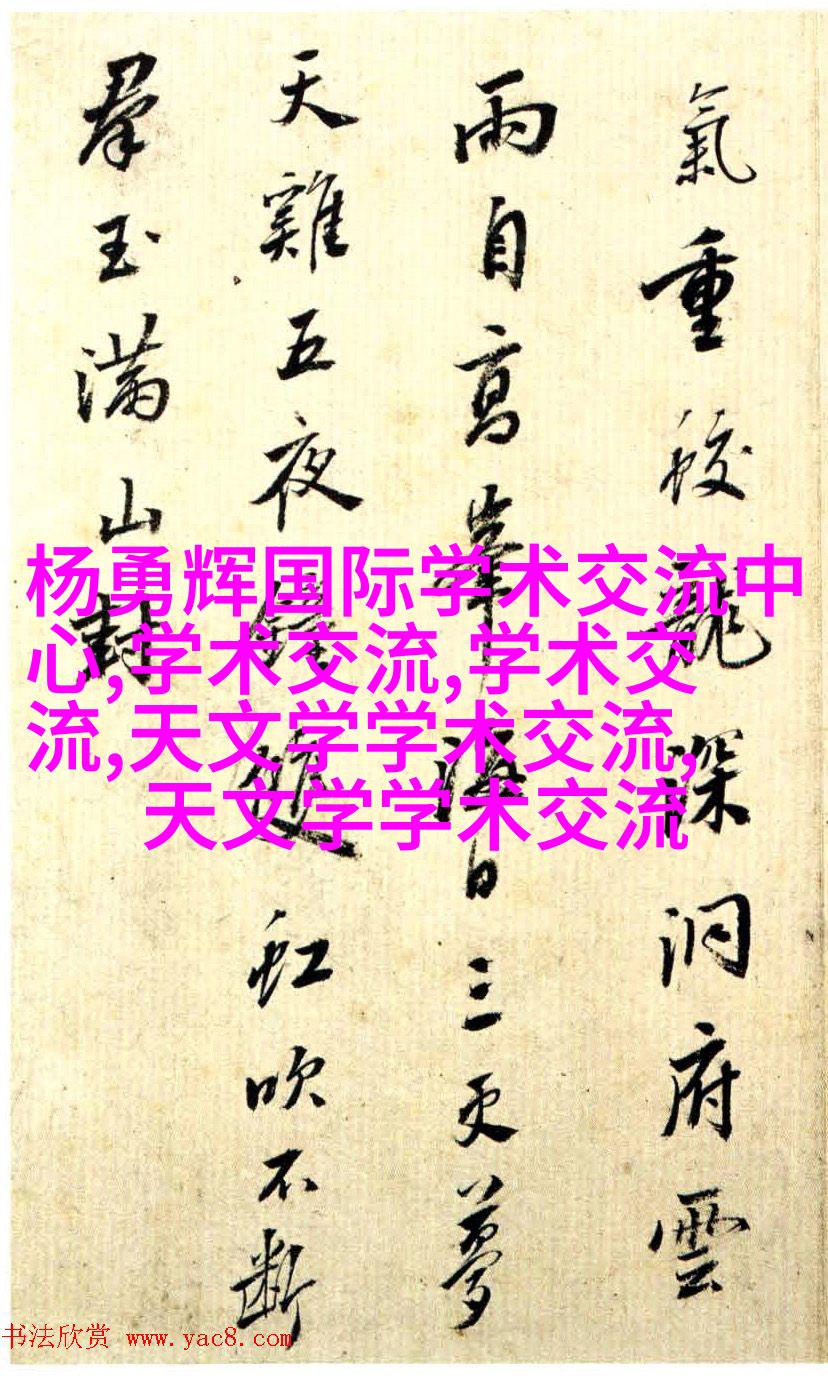 氣重蛟龍深洞府雲
雨自高峯海日三更夢
天雞五夜鐘
虹吹不斷
羣玉滿山封
杨勇辉国际学术交流中
心,学术交流,学术交
流,天文学学术交流,
天文学学术交流
书法欣赏 www.yac8.com